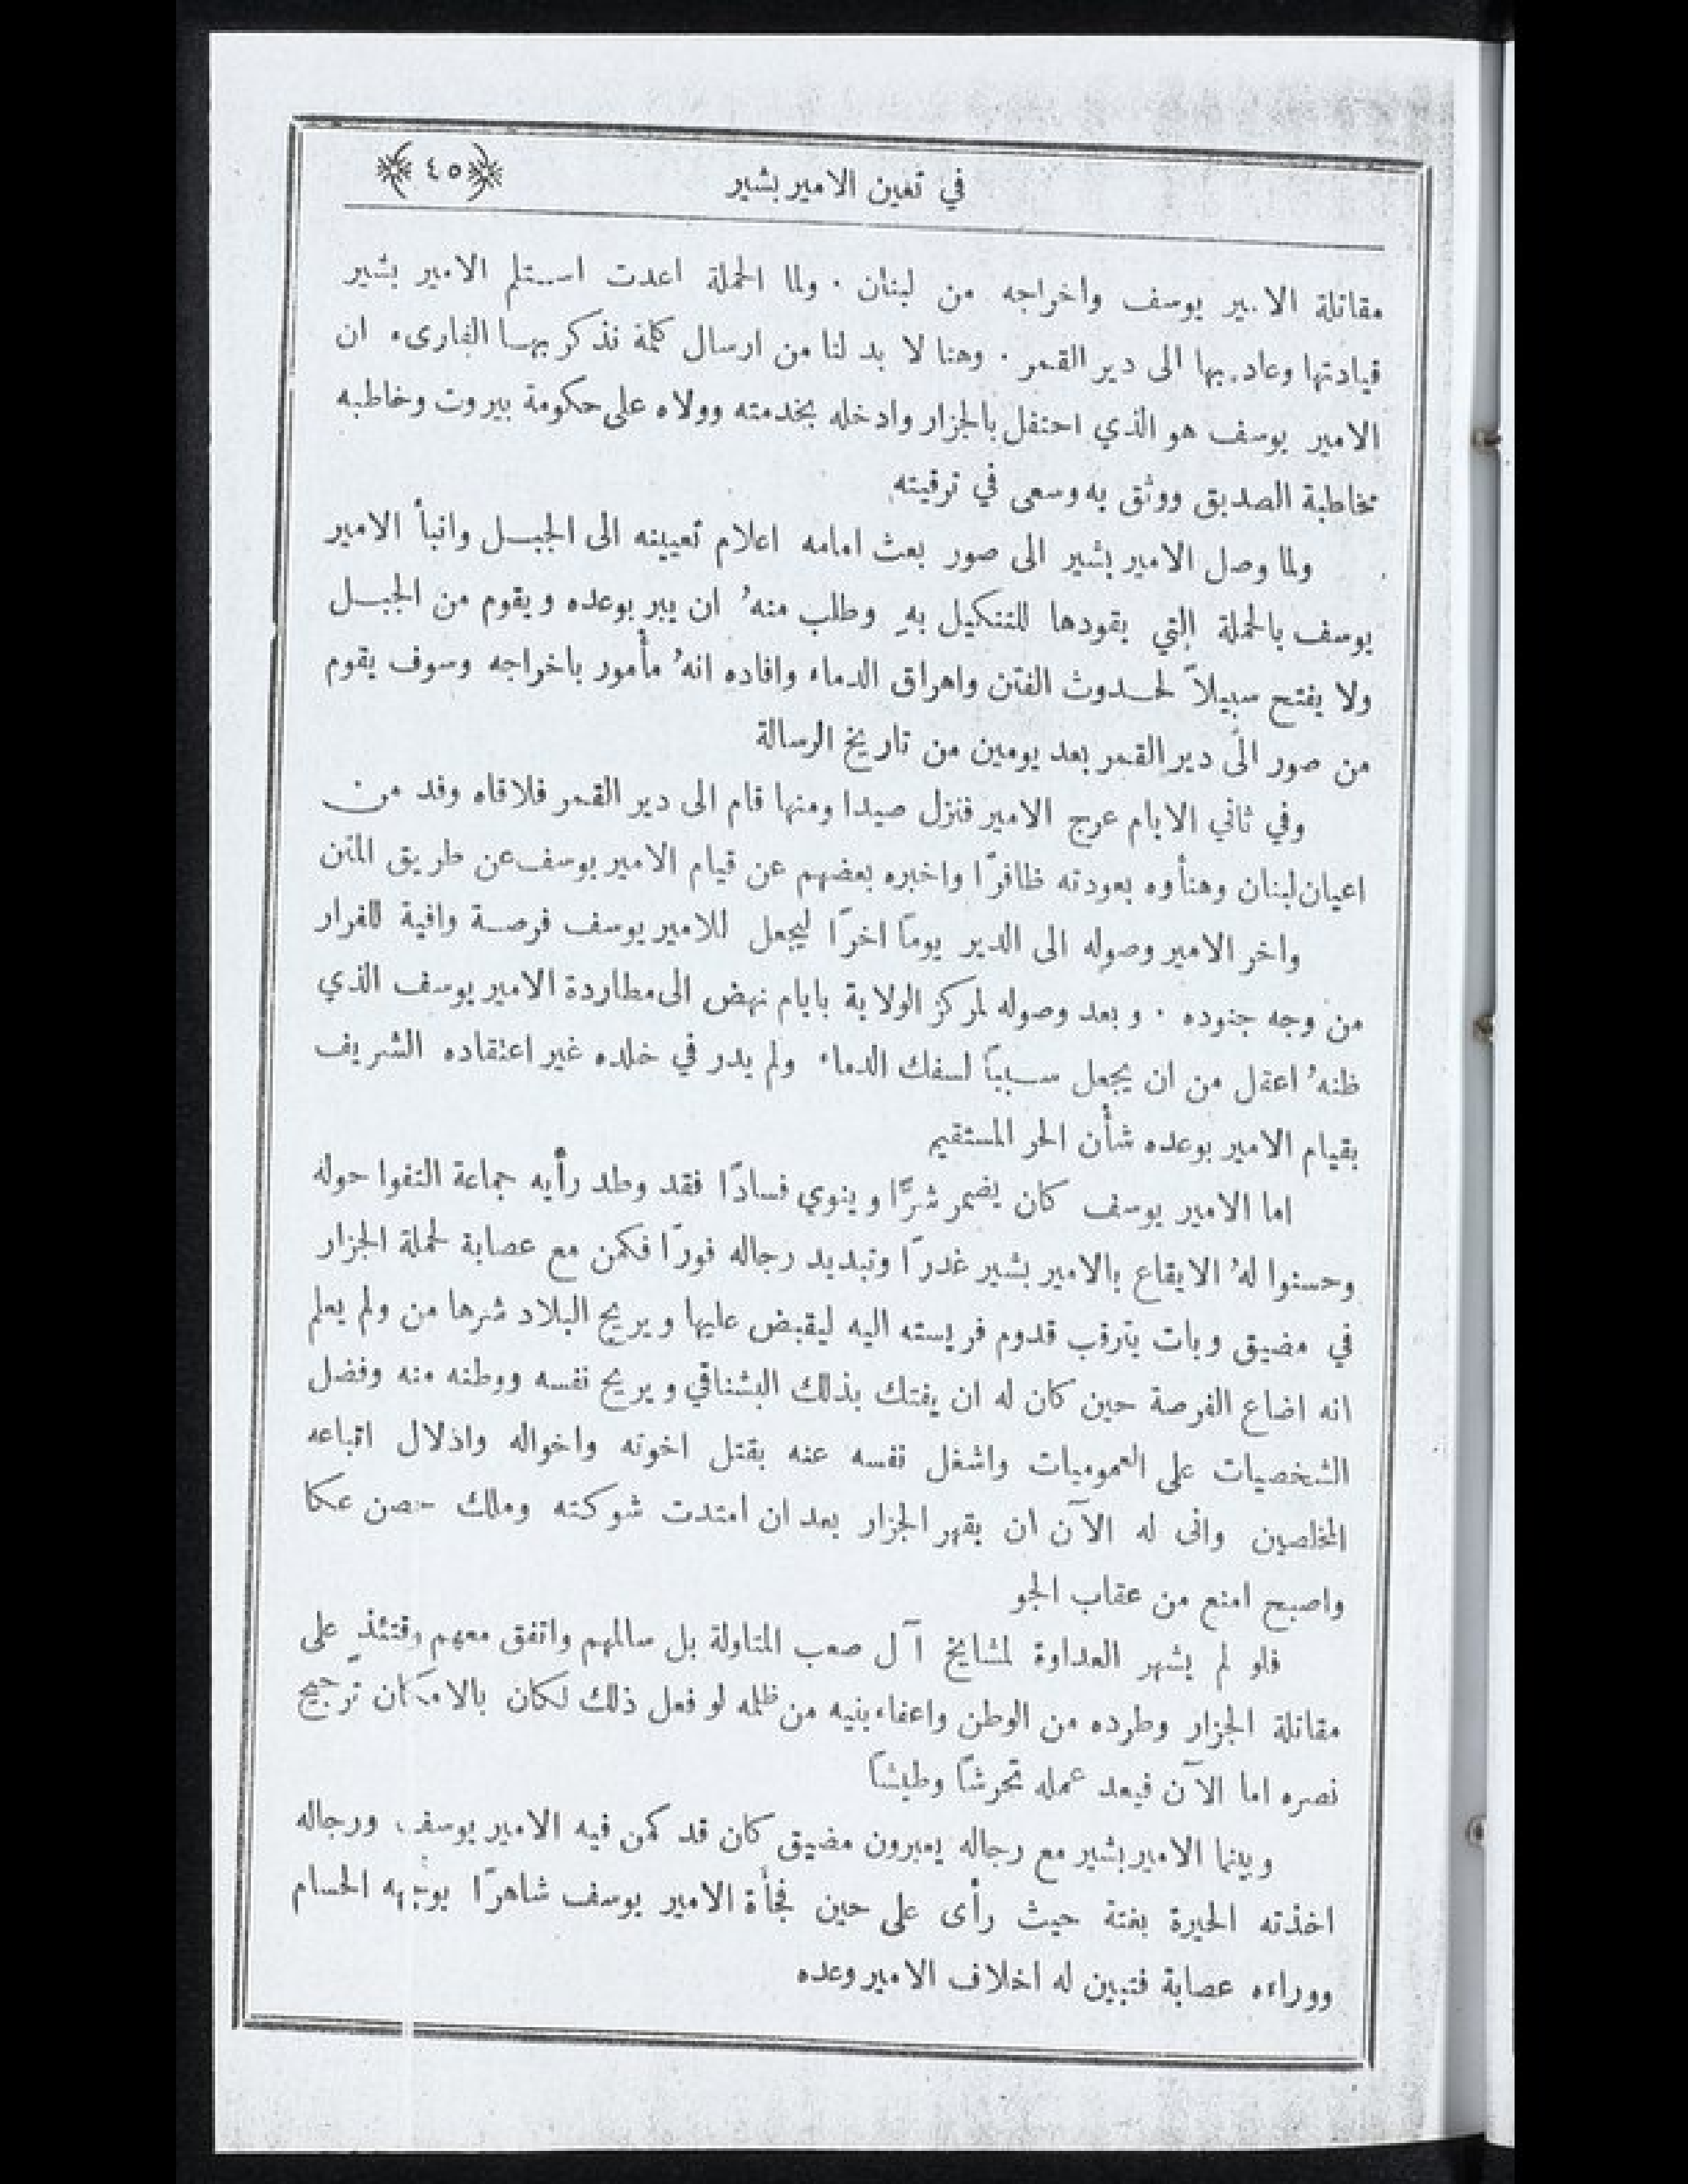 في تعين الامير بشير ﴿٤٥﴾
مقاتلة الامير يوسف واخراجه من لبنان . ولما الحملة اعدت استلم الامير بشير
قيادتها وعاد بها الى دير القمر . وهنا لا بد لنا من ارسال كلمة نذكر بها القارىء ان
الامير يوسف هو الذي احتفل بالجزار وادخله بخدمته وولاه على حكومة بيروت وخاطبه
مخاطبة الصديق ووثق به وسعى في ترقيته
ولما وصل الامير بشير الى صور بعث امامه اعلام تعيينه الى الجبل وانبأ الامير
يوسف بالحملة التي يقودها للتنكيل بهِ وطلب منهُ ان يبر بوعده ويقوم من الجبل
ولا يفتح سبيلاً لحدوث الفتن واهراق الدماء وافاده انهُ مأمور باخراجه وسوف يقوم
من صور الى دير القمر بعد يومين من تاريخ الرسالة
وفي ثاني الايام عرج الامير فنزل صيدا ومنها قام الى دير القمر فلاقاه وفد من
اعيان لبنان وهنأوه بعودته ظافرًا واخبره بعضهم عن قيام الامير يوسف عن طريق المتن
واخر الامير وصوله الى الدير يومًا اخرًا ليجعل للامير يوسف فرصة وافية للفرار
من وجه جنوده . وبعد وصوله لمركز الولاية بايام نهض الى مطاردة الامير يوسف الذي
ظنهُ اعقل من ان يجعل سببًا لسفك الدماء ولم يدر في خلده غير اعتقاده الشريف
بقيام الامير بوعده شأن الحر المستقيم
اما الامير يوسف كان يضمر شرًّا وينوي فسادًا فقد وطد رأيه جماعة التفوا حوله
وحسنوا لهُ الايقاع بالامير بشير غدرًا وتبديد رجاله فورًا فكمن مع عصابة لحملة الجزار
في مضيق وبات يترقب قدوم فريسته اليه ليقبض عليها ويريح البلاد شرها من ولم يعلم
انه اضاع الفرصة حين كان له ان يفتك بذلك البشناقي ويريح نفسه ووطنه منه وفضل
الشخصيات على العموميات واشغل نفسه عنه بقتل اخوته واخواله واذلال اتباعه
المخلصين وانى له الآن ان يقهر الجزار بعد ان امتدت شوكته وملك حصن عكا
واصبح امنع من عقاب الجو
فلو لم يشهر العداوة لمشايخ آل صعب المتاولة بل سالمهم واتفق معهم وقتئذٍ على
مقاتلة الجزار وطرده من الوطن واعفاء بنيه من ظلمه لو فعل ذلك لكان بالامكان ترجيح
نصره اما الآن فيعد عمله تحرشًا وطيشًا
وبينما الامير بشير مع رجاله يعبرون مضيق كان قد كمن فيه الامير يوسف ورجاله
اخذته الحيرة بغتة حيث رأى على حين فجأة الامير يوسف شاهرًا بوجهه الحسام
ووراءه عصابة فتبين له اخلاف الامير وعده